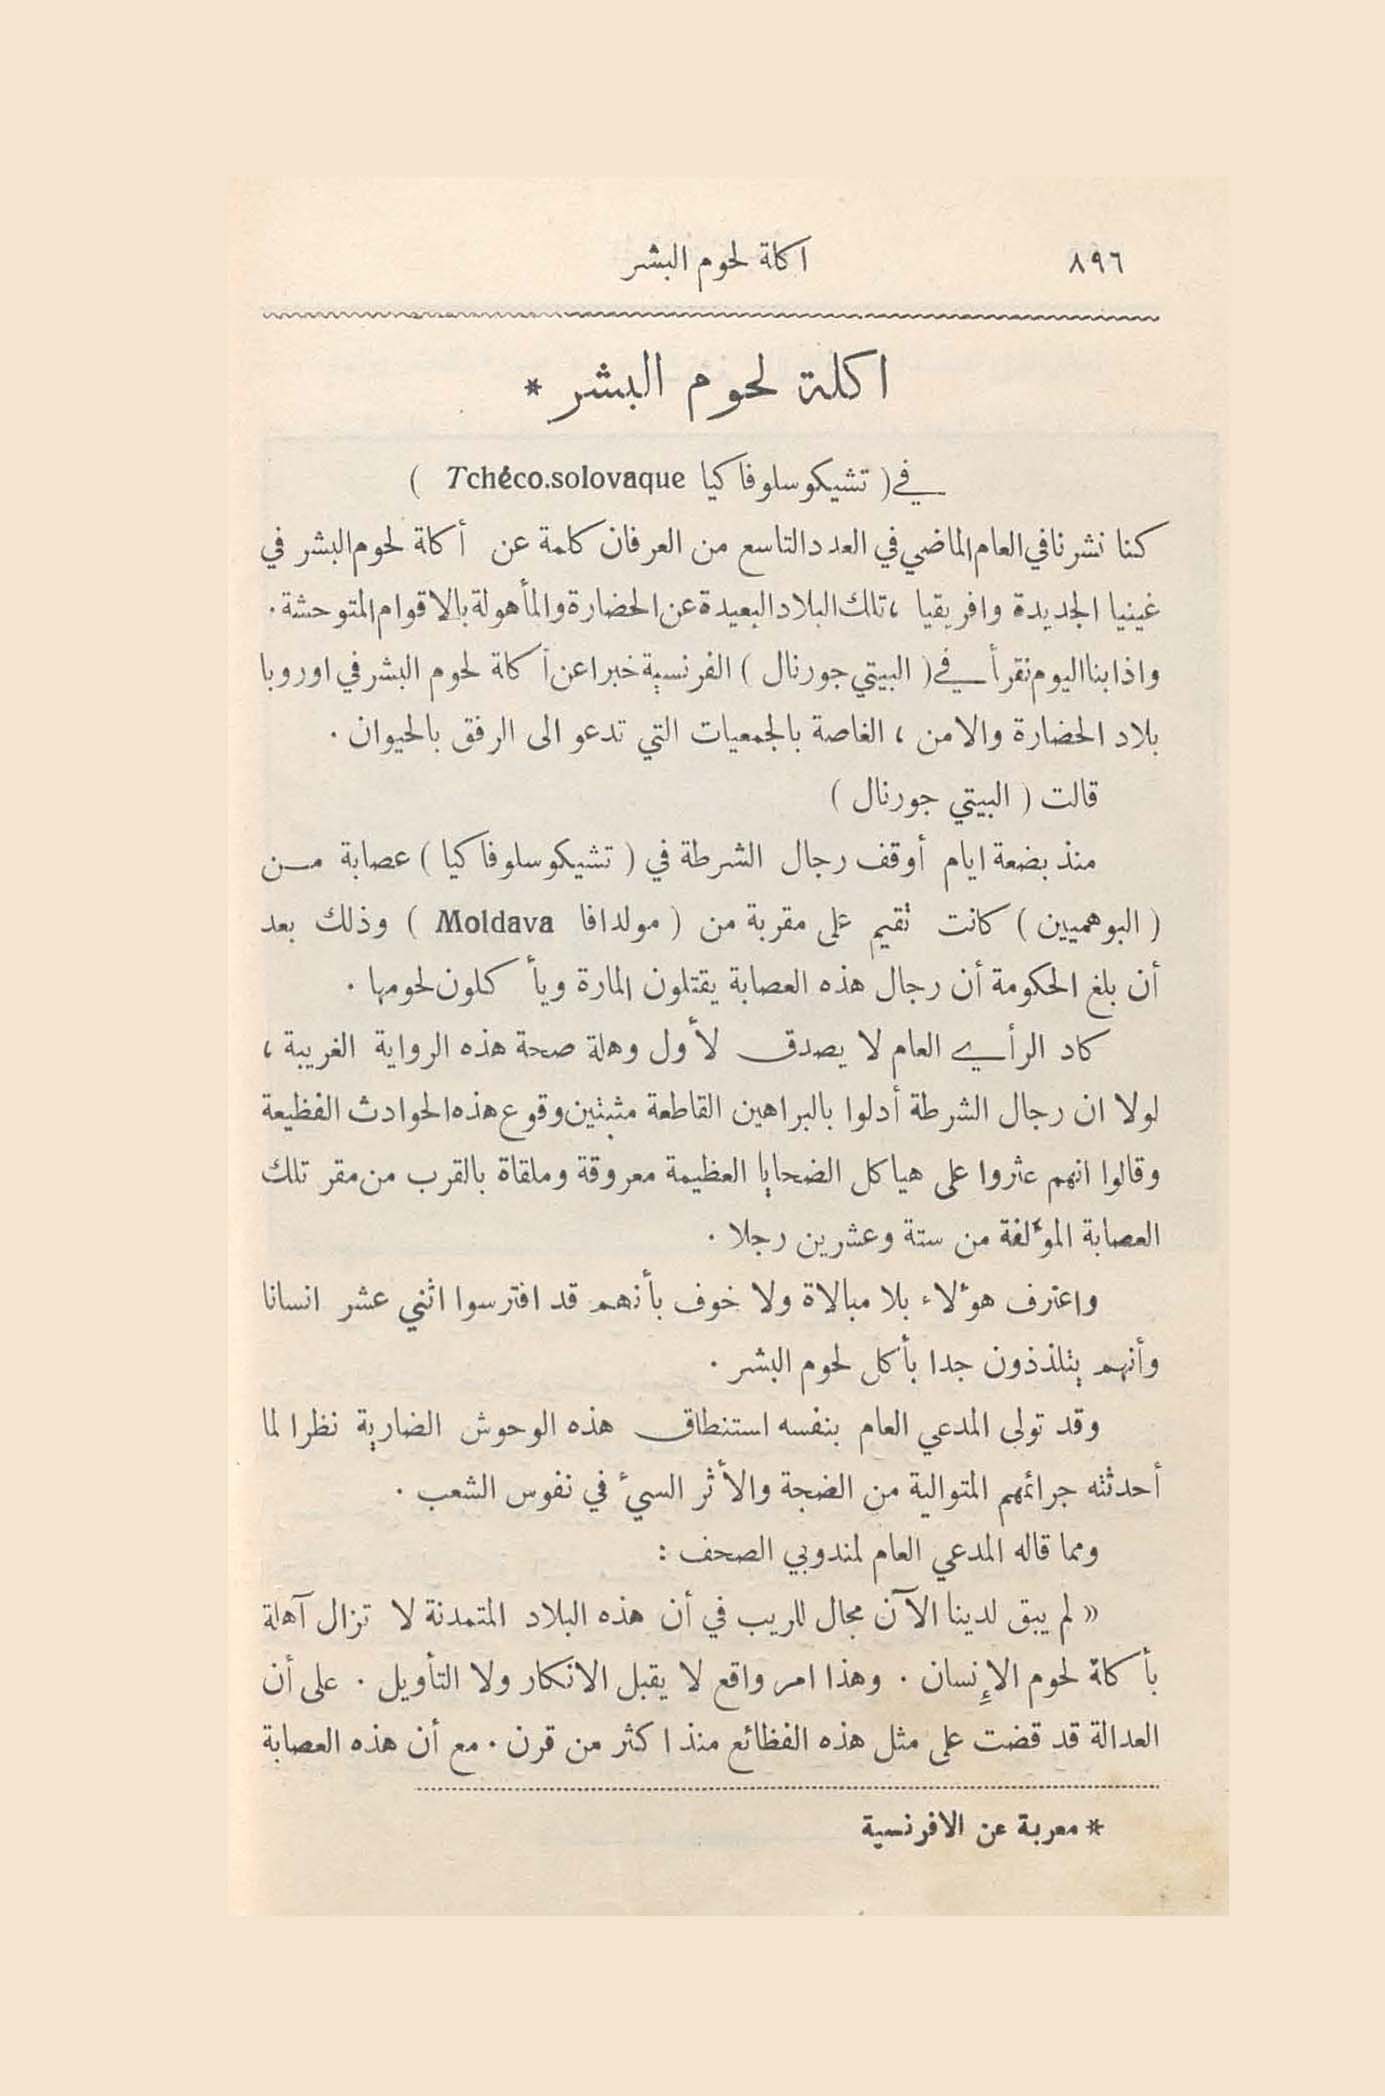 ٨٩٦ اكلة لحوم البشر
اكلة لحوم البشر *
في ( تشيكوسلوفاكيا Tchéco.solovaque )
كنا نشرنا في العام الماضي في العدد التاسع من العرفان كلمة عن أكلة لحوم البشر في
غينيا الجديدة وافريقيا ، تلك البلاد البعيدة عن الحضارة والمأهولة بالاقوام المتوحشة .
واذا بنا اليوم نقرأ في ( البيتي جورنال ) الفرنسية خبرا عن أكلة لحوم البشر في اوروبا
بلاد الحضارة والامن ، الغاصة بالجمعيات التي تدعو الى الرفق بالحيوان .
قالت ( البيتي جورنال )
منذ بضعة ايام أوقف رجال الشرطة في ( تشيكوسلوفاكيا ) عصابة من
( البوهميين ) كانت تقيم على مقربة من ( مولدافا Moldava ) وذلك بعد
أن بلغ الحكومة أن رجال هذه العصابة يقتلون المارة ويأكلون لحومها .
كاد الرأي العام لا يصدق لأول وهلة صحة هذه الرواية الغريبة ،
لولا ان رجال الشرطة أدلوا بالبراهين القاطعة مثبتين وقوع هذه الحوادث الفظيعة
وقالوا انهم عثروا على هياكل الضحايا العظيمة معروقة وملقاة بالقرب من مقر تلك
العصابة المؤلفة من ستة وعشرين رجلا .
واعترف هؤلاء بلا مبالاة ولا خوف بأنهم قد افترسوا اثني عشر انسانا
وأنهم يتلذذون جدا بأكل لحوم البشر .
وقد تولى المدعي العام بنفسه استنطاق هذه الوحوش الضارية نظرا لما
أحدثته جرائمهم المتوالية من الضجة والأثر السيء في نفوس الشعب .
ومما قاله المدعي العام لمندوبي الصحف :
« لم يبق لدينا الآن مجال للريب في أن هذه البلاد المتمدنة لا تزال آهلة
بأكلة لحوم الإنسان . وهذا امر واقع لا يقبل الانكار ولا التأويل . على أن
العدالة قد قضت على مثل هذه الفظائع منذ اكثر من قرن . مع أن هذه العصابة
* معربة عن الافرنسية